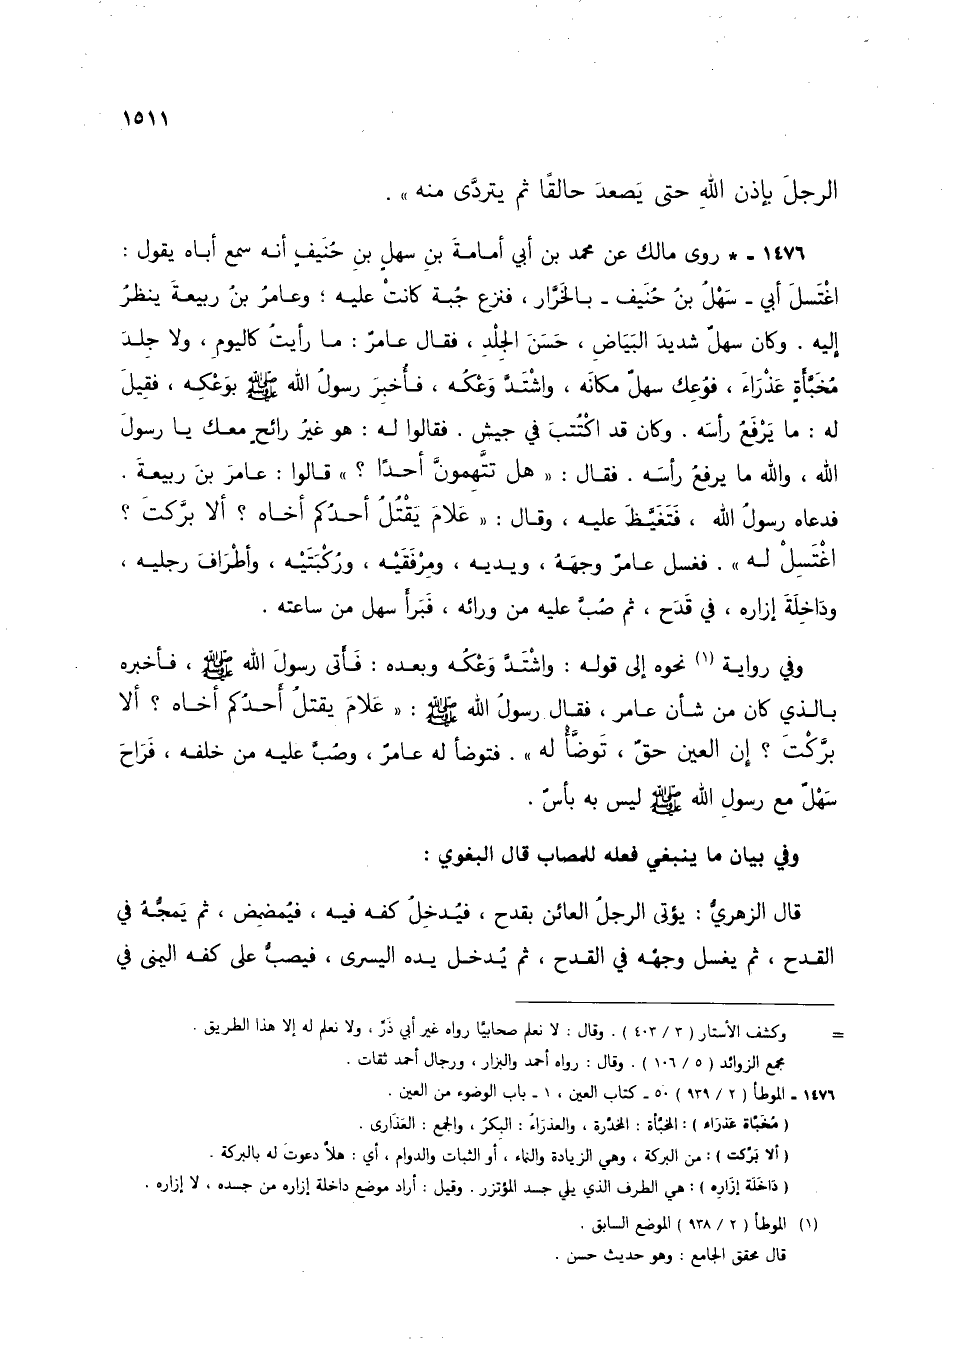 ١٥١١
الرجلَ بإذن اللهِ حتى يَصعدَ حالقًا ثم يتردَّى منه » .
١٤٧٦ - * روى مالك عن محمد بن أبي أمامةَ بنِ سهلِ بنِ حُنَيفٍ أنه سمع أباه يقول :
اغْتَسلَ أبي - سَهْلُ بنُ حُنَيف - بالخَرَّار ، فنزع جُبة كانتْ عليه ؛ وعامرُ بنُ ربيعةَ ينظرُ
إليه . وكان سهلٌ شديدَ البَيَاضِ ، حَسَنَ الجِلْدِ ، فقال عامرٌ : ما رأيتُ كاليومِ ، ولا جلدَ
مُخَبَّأةٍ عَذْرَاءَ ، فوُعِك سهلٌ مكانَه ، واشْتَدَّ وَعْكُه ، فأُخبرَ رسولُ الله ﷺ بوَعْكِه ، فقيلَ
له : ما يَرْفَعُ رأسَه . وكان قد اكْتُتبَ في جيش . فقالوا له : هو غيرُ رائحٍ معك يا رسولَ
الله ، والله ما يرفعُ رأسَه . فقال : « هل تتَّهمونَّ أحدًا ؟ » قالوا : عامرَ بنَ ربيعةَ .
فدعاه رسولُ الله ، فَتَغَيَّظَ عليه ، وقال : « عَلامَ يَقْتُلُ أحدُكم أخاه ؟ ألا برَّكتَ ؟
اغْتَسِلْ له » . فغسل عامرٌ وجهَهُ ، ويديه ، ومِرْفَقَيْه ، ورُكْبَتَيْه ، وأطْرَافَ رجليه ،
ودَاخِلَةَ إزاره ، في قَدَح ، ثم صُبَّ عليه من ورائه ، فَبَرأَ سهل من ساعته .
وفي رواية (١) نحوه إلى قوله : واشْتَدَّ وَعْكُه وبعده : فَأَتى رسولَ الله ﷺ ، فأخبره
بالذي كان من شأن عامر ، فقال رسولُ الله ﷺ : « عَلامَ يقتلُ أحدُكم أخاه ؟ ألا
برَّكْتَ ؟ إن العين حقّ ، تَوضَّأْ له » . فتوضأ له عامرٌ ، وصُبَّ عليه من خلفه ، فَرَاحَ
سَهْلٌ مع رسولِ الله ﷺ ليس به بأسٌ .
وفي بيان ما ينبغي فعله للمصاب قال البغوي :
قال الزهريُّ : يؤتى الرجلُ العائن بقدح ، فيُدخلُ كفه فيه ، فيُمضمض ، ثم يَمجُّهُ في
القدح ، ثم يغسل وجهَه في القدح ، ثم يُدخل يده اليسرى ، فيصبُّ على كفه اليمنى في
= وكشف الأستار ( ٣ / ٤٠٣ ) . وقال : لا نعلم صحابيًا رواه غير أبي ذَرّ ، ولا نعلم له إلا هذا الطريق .
مجمع الزوائد ( ٥ / ١٠٦ ) . وقال : رواه أحمد والبزار ، ورجال أحمد ثقات .
١٤٧٦ - الموطأ ( ٢ / ٩٣٩ ) ٥٠ - كتاب العين ، ١ - باب الوضوء من العين .
( مُخَبَّأة عَذراء ) : المخبَّأة : المخدَّرة ، والعذراءُ : البكرُ ، والجمع : العَذَارى .
( ألا بَرّكت ) : من البركة ، وهي الزيادة والنماء ، أو الثبات والدوام ، أي : هلاَّ دعوتَ له بالبركة .
( دَاخَلَة إزَارِه ) : هي الطرف الذي يلي جسد المؤتزر . وقيل : أراد موضع داخلة إزاره من جسده ، لا إزاره .
(١) الموطأ ( ٢ / ٩٣٨ ) الموضع السابق .
قال محقق الجامع : وهو حديث حسن .